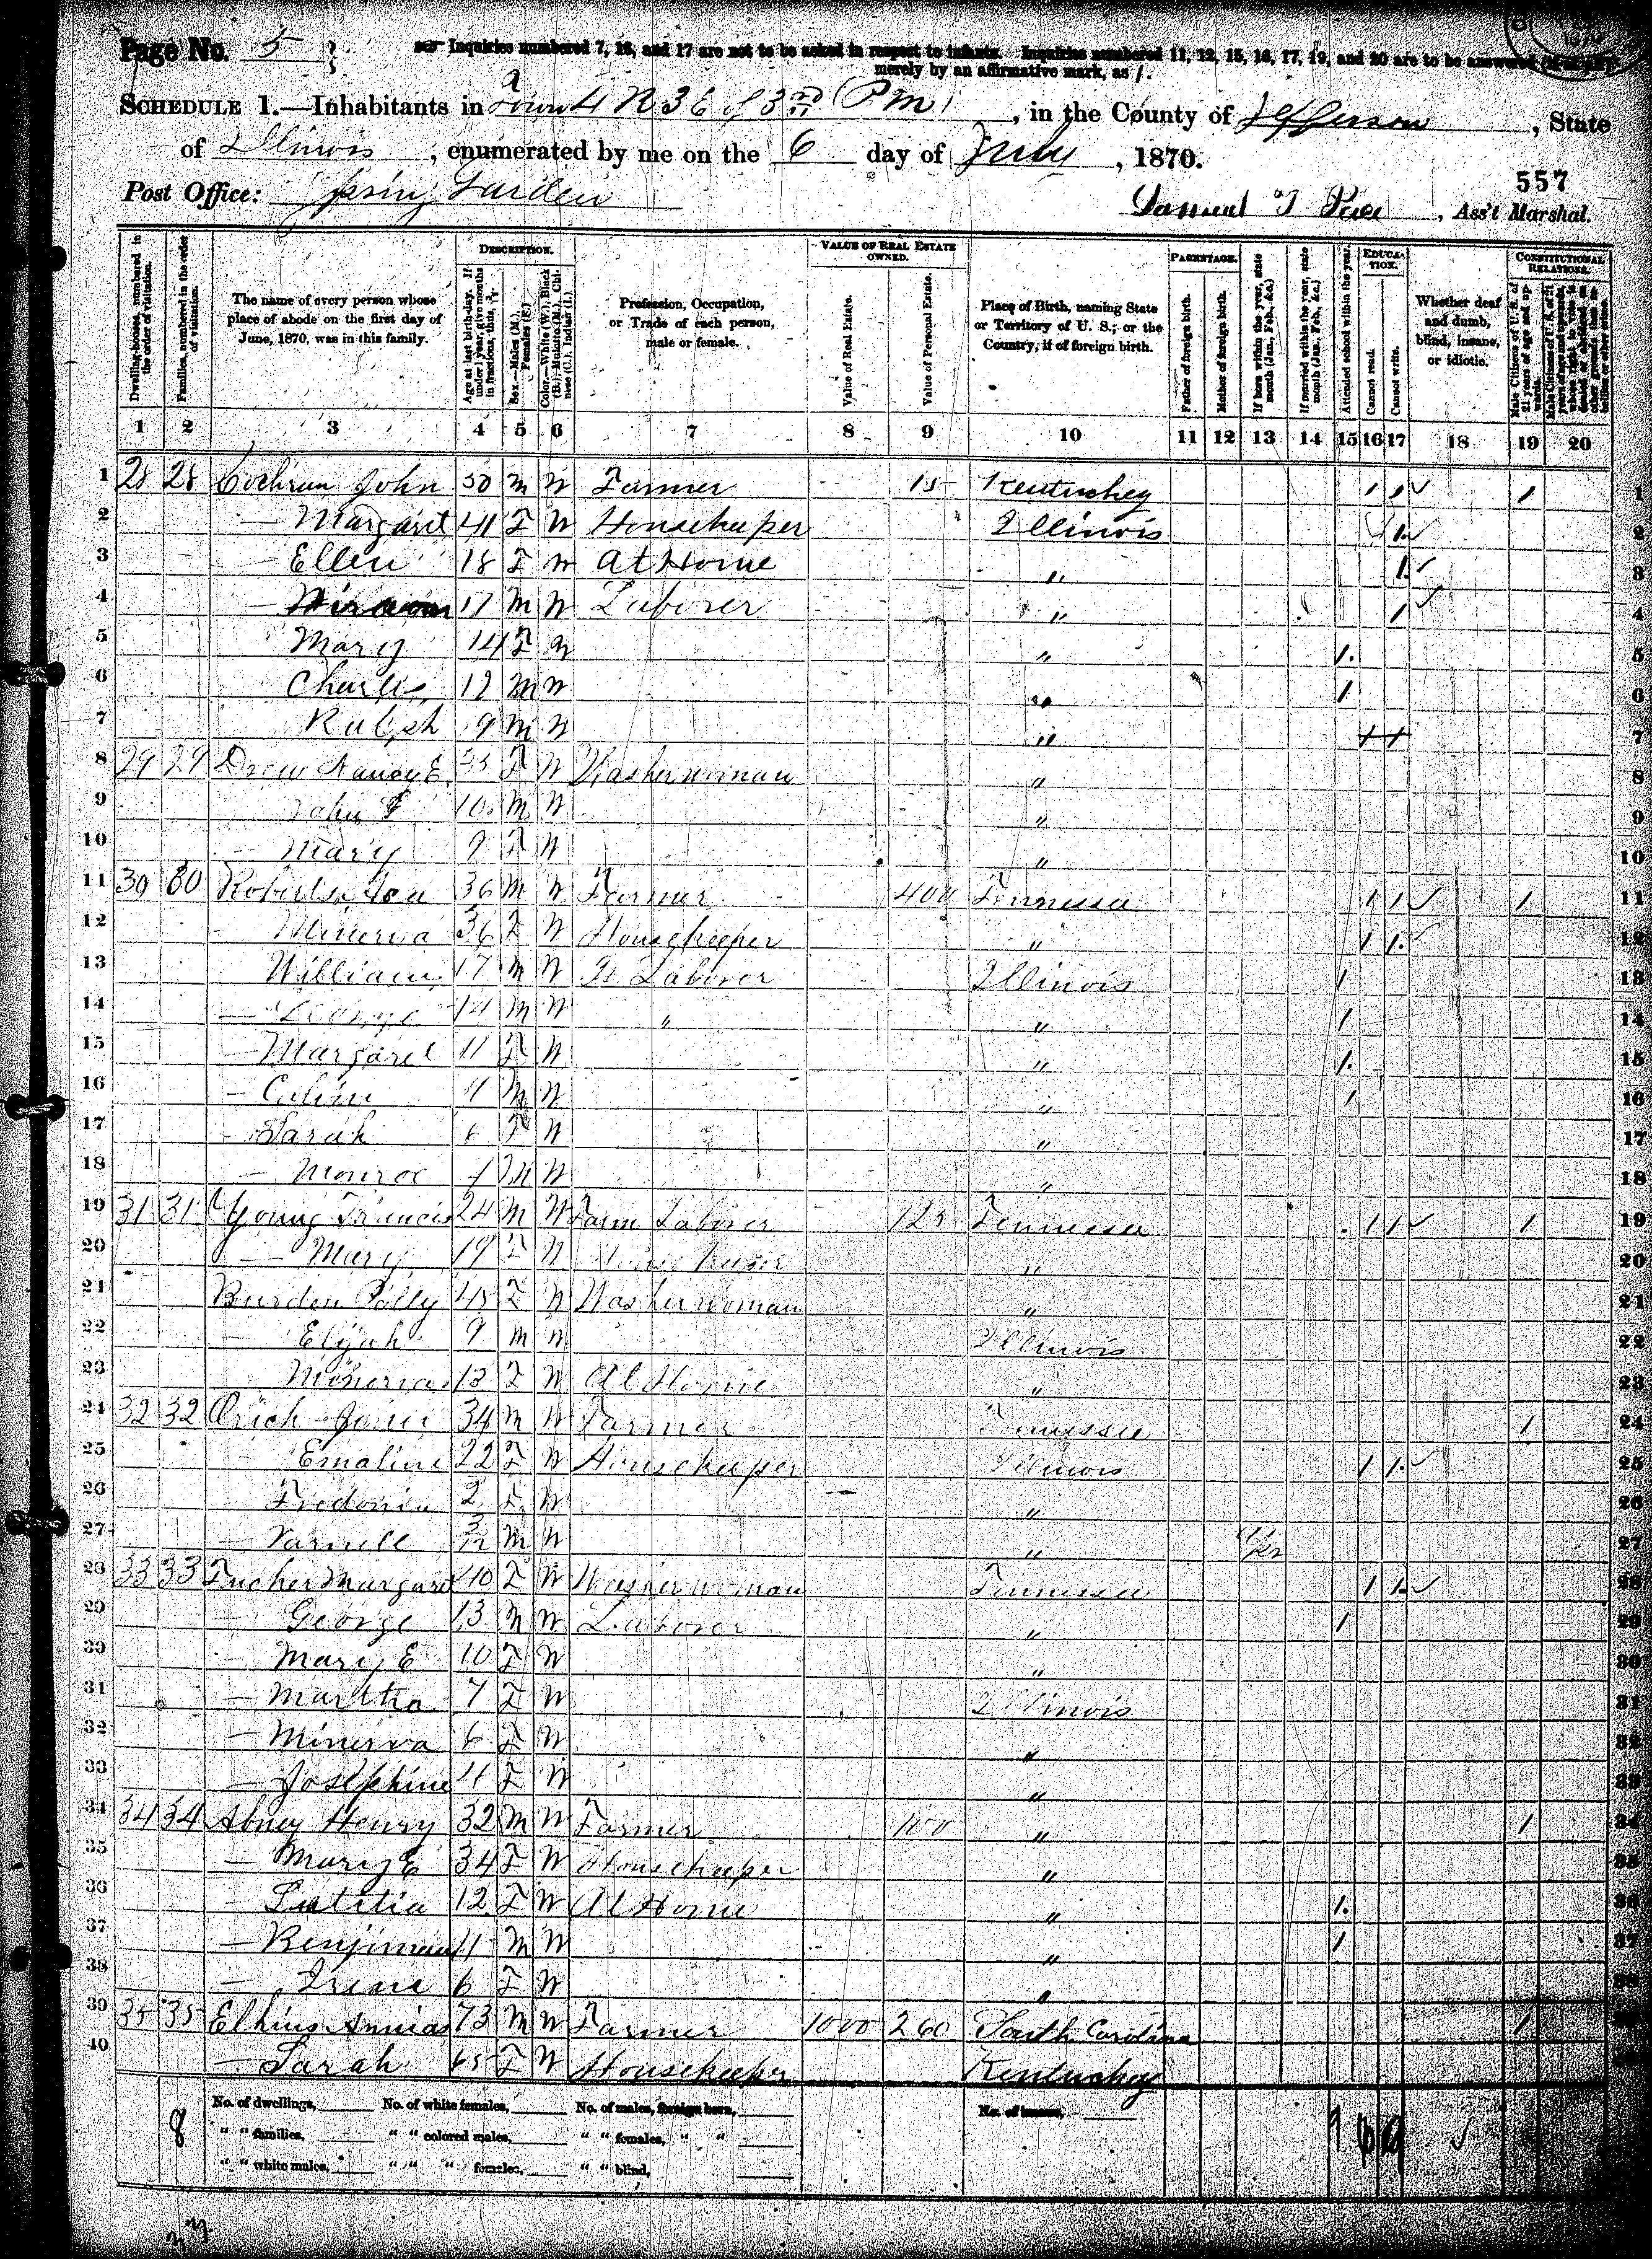 Page No. 5
Inquiries numbered 7, 16, and 17 are not to be asked in respect to infants. Inquiries numbered 11, 12, 15, 16, 17, 19, and 20 are to be answered
merely by an affirmative mark, as /.
SCHEDULE 1.—Inhabitants in Town 4 R 3 E of 3rd (P.M), in the County of Jefferson, State
of Illinois, enumerated by me on the 6 day of July, 1870.
557
Post Office: Spring Garden
Samuel T , Ass't Marshal.
Dwelling-houses, numbered in the order of visitation.
Families, numbered in the order of visitation.
The name of every person whose place of abode on the first day of June, 1870, was in this family.
DESCRIPTION.
Age at last birth-day. If under 1 year, give months in fractions, thus, 3/12.
Sex.—Males (M.), Females (F.)
Color.—White (W.), Black (B.), Mulatto (M.), Chinese (C.), Indian (I.)
Profession, Occupation, or Trade of each person, male or female.
VALUE OF REAL ESTATE OWNED.
Value of Real Estate.
Value of Personal Estate.
Place of Birth, naming State or Territory of U. S.; or the Country, if of foreign birth.
PARENTAGE.
Father of foreign birth.
Mother of foreign birth.
If born within the year, state month (Jan., Feb., &c.)
If married within the year, state month (Jan., Feb., &c.)
EDUCATION.
Attended school within the year.
Cannot read.
Cannot write.
Whether deaf and dumb, blind, insane, or idiotic.
CONSTITUTIONAL RELATIONS.
Male Citizens of U. S. of 21 years of age and upwards.
1 2 3 4 5 6 7 8 9 10 11 12 13 14 15 16 17 18 19 20
1 28 28 Cochran John 50 M W Farmer 15 Kentuckey / / / 1
2 — Margaret 41 F W Housekeeper Illinois / 2
3 — Ellen 18 F W At Home " / 3
4 — 17 M W Laborer " / 4
5 Mary 14 F W " / 5
6 Charles 12 M W " / 6
7 Ralph 9 M W " 7
8 29 29 Drew Nancy E 35 F W Washerwoman " 8
9 John F 10 M W " 9
10 — Mary 9 F W " 10
11 30 30 Roberts Ira 36 M W Farmer 400 Tennessee / / / 11
12 - Minerva 36 F W Housekeeper " / / 12
13 William 17 M W F Laborer Illinois / 13
14 — George 14 M W " " / 14
15 — Margaret 11 F W " / 15
16 - Calvin M W " / 16
17 - Sarah 6 F W " 17
18 — Monroe 1 M W " 18
19 31 31 Young Francis 24 M W Farm Laborer 125 Tennessee / / / 19
20 — Mary 19 F W " 20
21 Burden Polly 45 F W Washerwoman " 21
22 — Elijah 9 M W Illinois 22
23 — Minerva 13 F W At Home " 23
24 32 32 34 M W Farmer Tennessee / 24
25 Emaline 22 F W Housekeeper Illinois / / 25
26 Fredonia 2 F W " 26
27 — Varnell 3/12 M W " 27
28 33 33 Tucker Margaret 40 F W Washerwoman Tennessee / / 28
29 — George 13 M W Laborer " / 29
30 — Mary E 10 F W " 30
31 — Martha 7 F W Illinois 31
32 — Minerva 6 F W " 32
33 — Josephine 4 F W " 33
34 34 34 Abney Henry 32 M W Farmer 100 " / 34
35 — Mary E 34 F W Housekeeper " 35
36 — Letitia 12 F W At Home " / 36
37 — Benjimin 11 M W " / 37
38 — Irene 6 F W " 38
39 35 35 Elkins 73 M W Farmer 1000 260 South Carolina /
40 — Sarah 65 F W Housekeeper Kentuckey
8
No. of dwellings, No. of white females, No. of males, foreign born,
" " families, " " colored males, " " females, " "
" " white males, " " " females, " " blind,